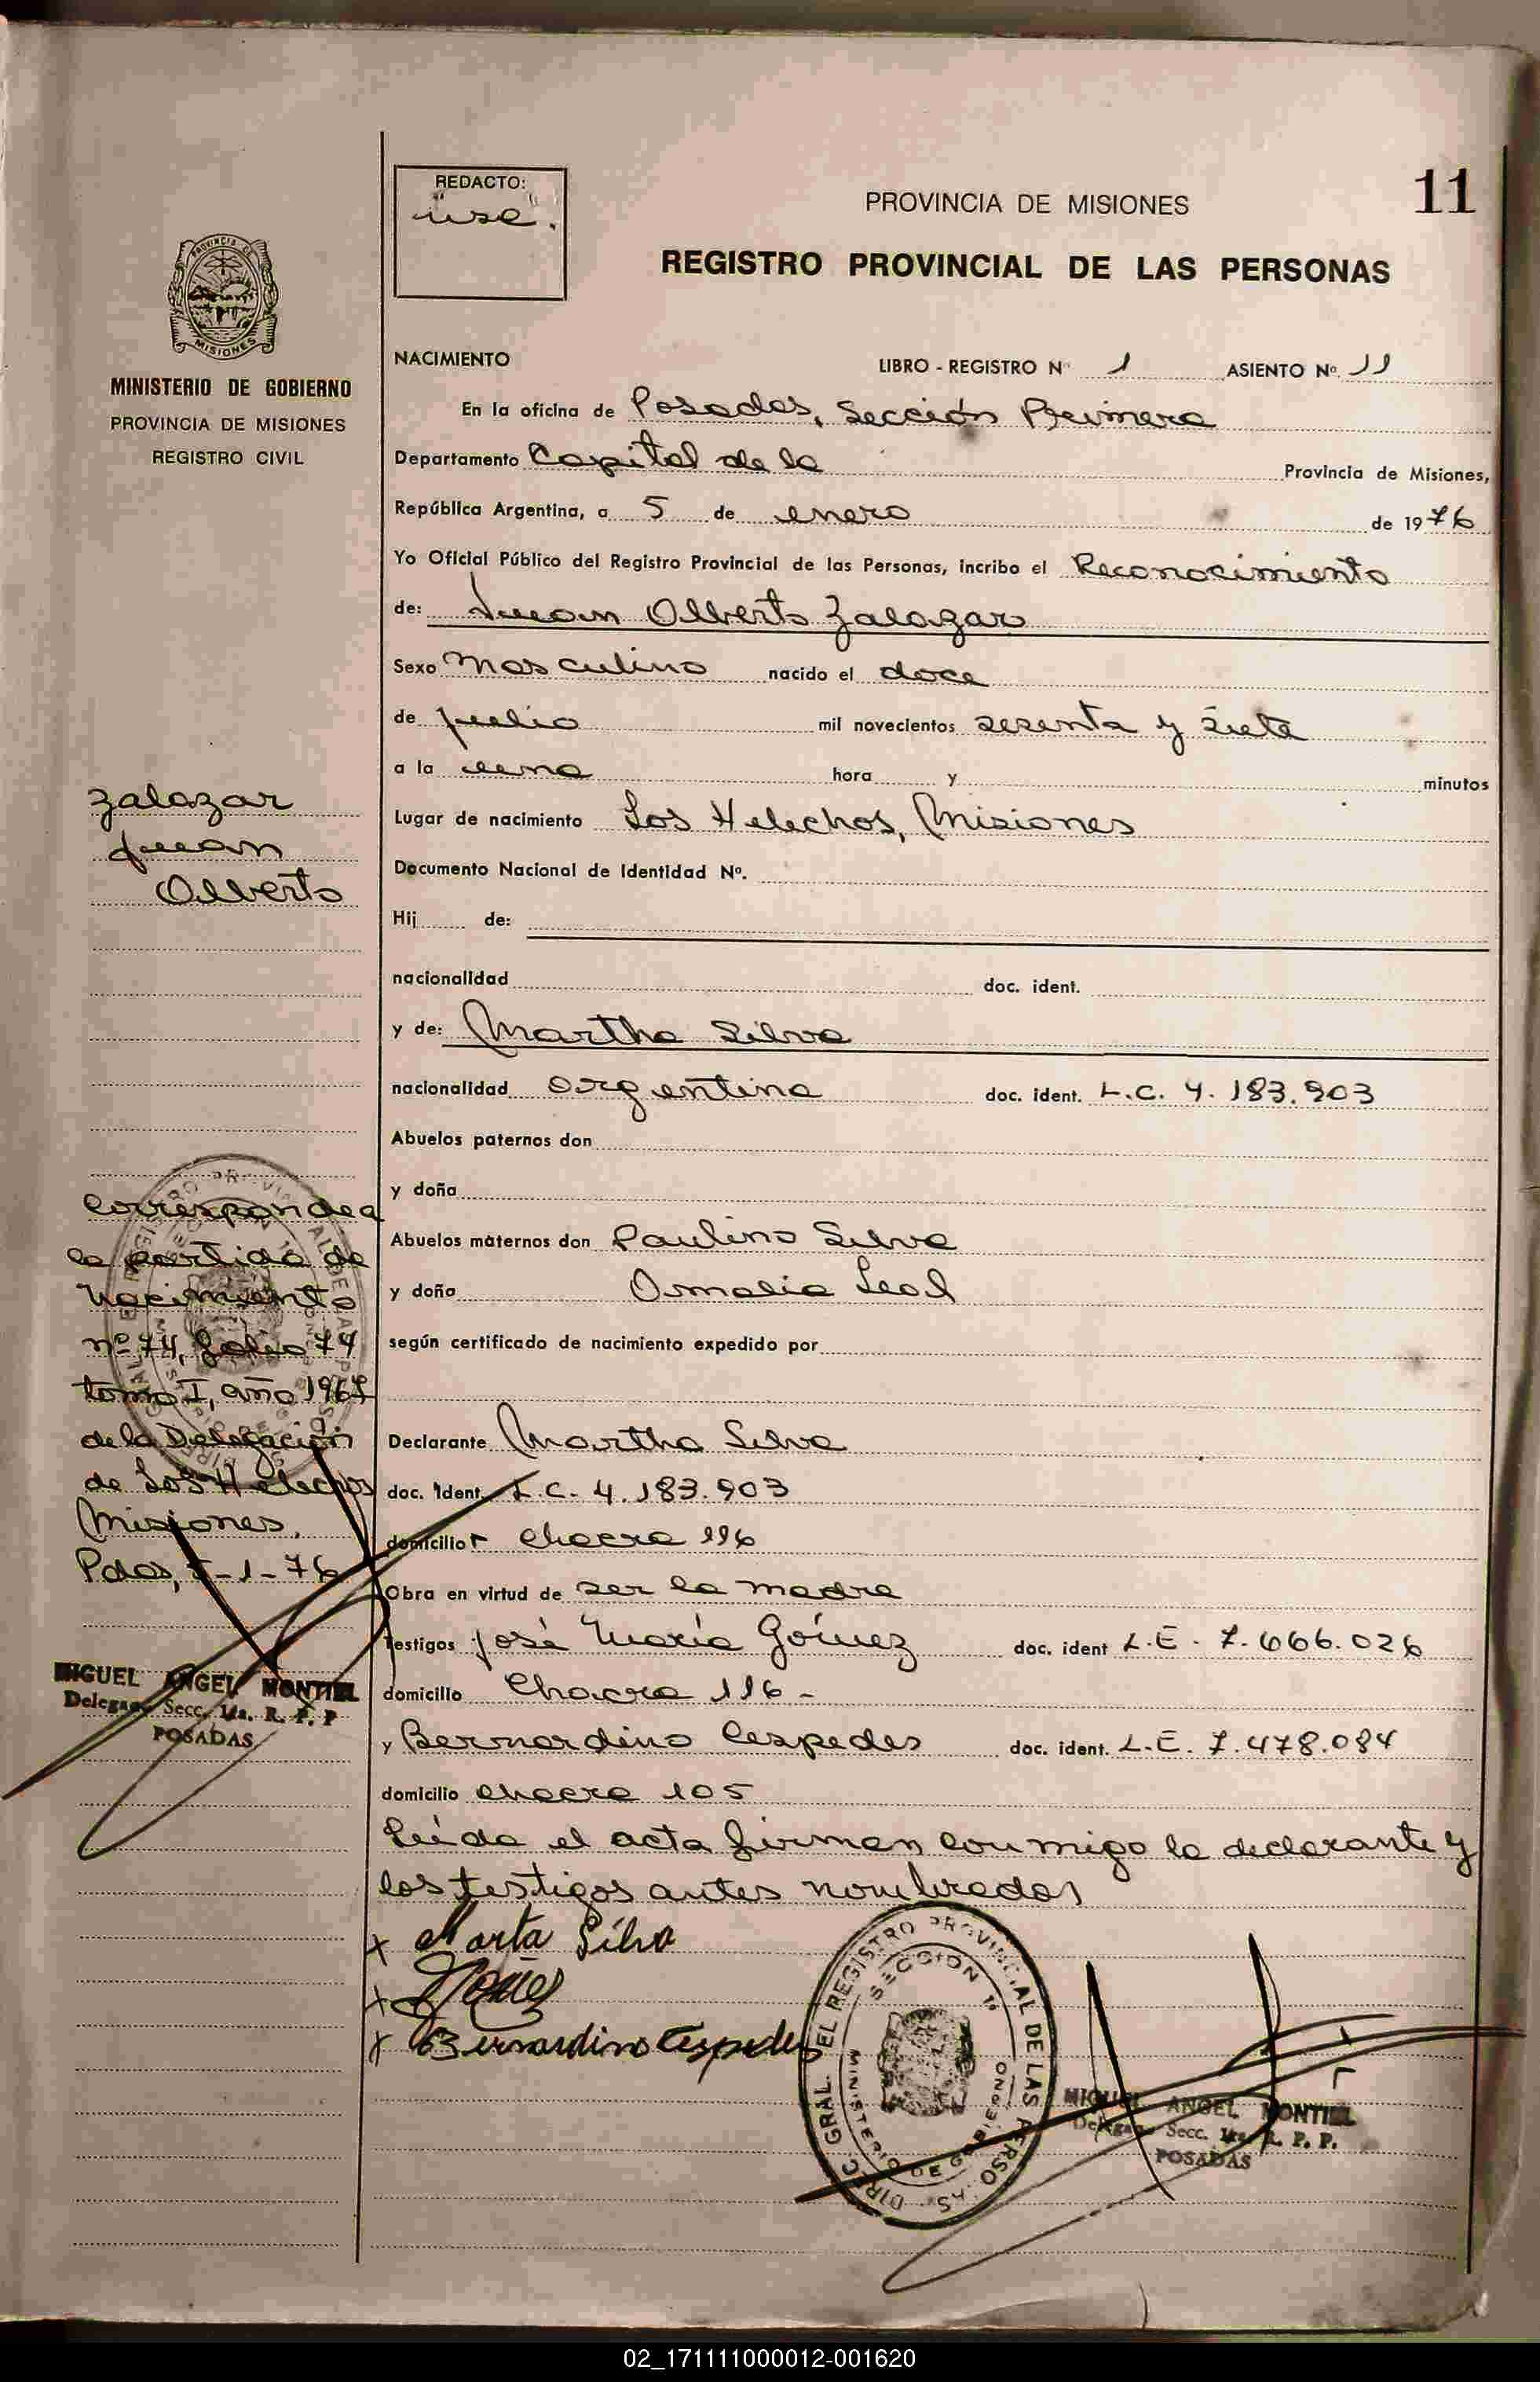 11
REDACTO:
PROVINCIA DE MISIONES
REGISTRO PROVINCIAL DE LAS PERSONAS
MISIONES
MINISTERIO DE GOBIERNO
PROVINCIA DE MISIONES
REGISTRO CIVIL
NACIMIENTO LIBRO - REGISTRO Nº 1 ASIENTO Nº 11
En la oficina de Posadas, Sección Primera
Departamento Capital de la Provincia de Misiones,
República Argentina, a 5 de enero de 1976
Yo Oficial Público del Registro Provincial de las Personas, incribo el Reconocimiento
de: Juan Alberto Zalazar
Sexo Masculino nacido el doce
de julio mil novecientos sesenta y siete
a la una hora y minutos
Lugar de nacimiento Los Helechos, Misiones
Documento Nacional de Identidad Nº.
Hij de:
nacionalidad doc. ident.
y de: Martha Silva
nacionalidad argentina doc. ident. L.C. 4.183.903
Abuelos paternos don
y doña
Abuelos maternos don Paulino Silva
y doña Amalia Leal
según certificado de nacimiento expedido por
Declarante Martha Silva
doc. ident. L.C. 4.183.903
domicilio chacra 116
Obra en virtud de ser la madre
testigos José María Gómez doc. ident L.E. 7.666.026
domicilio Chacra 116 -
y Bernardino Cespedes doc. ident. L.E. 7.478.084
domicilio chacra 105
Leída el acta firman conmigo la declarante y
los testigos antes nombrados
x Marta Silva
x
x Bernardino Cespedes
Zalazar
Juan
Alberto
Corresponde a
la partida de
Nacimiento
nº 74, folio 74
tomo I, año 1967
de la Delegación
de Los Helechos
Misiones.
Pdas, 5-1-76
MIGUEL ANGEL MONTIEL
Delegado Secc. 1ra. R. P. P
POSADAS
DIREC. GRAL. EL REGISTRO PROVINCIAL DE LAS PERSONAS
SECCION 1ª
MINISTERIO DE GOBIERNO
MIGUEL ANGEL MONTIEL
Delegado Secc. 1ra. R. P. P.
POSADAS
02_171111000012-001620